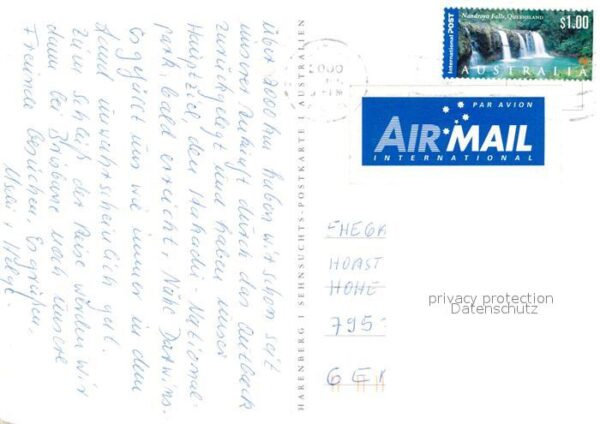 über 2000 km haben wir schon seit
unserer Ankunft durch das Outback
zurückgelegt und haben unser
Hauptziel, den Kakadu-National-
park, bald erreicht, Nähe Darwins.
Es gefällt uns wie immer in dem
Land unwahrscheinlich gut.
Zum Schluß der Reise werden wir
dann bei Brisbane noch unsere
Freunde besuchen. Es grüßen,
Helga
HARENBERG | SEHNSUCHTS-POSTKARTE | AUSTRALIEN
International POST
Nandroya Falls, QUEENSLAND
$1.00
AUSTRALIA
2000
PAR AVION
AIR MAIL
INTERNATIONAL
EHEGA
HORST
HOHE
795
GER
privacy protection
Datenschutz